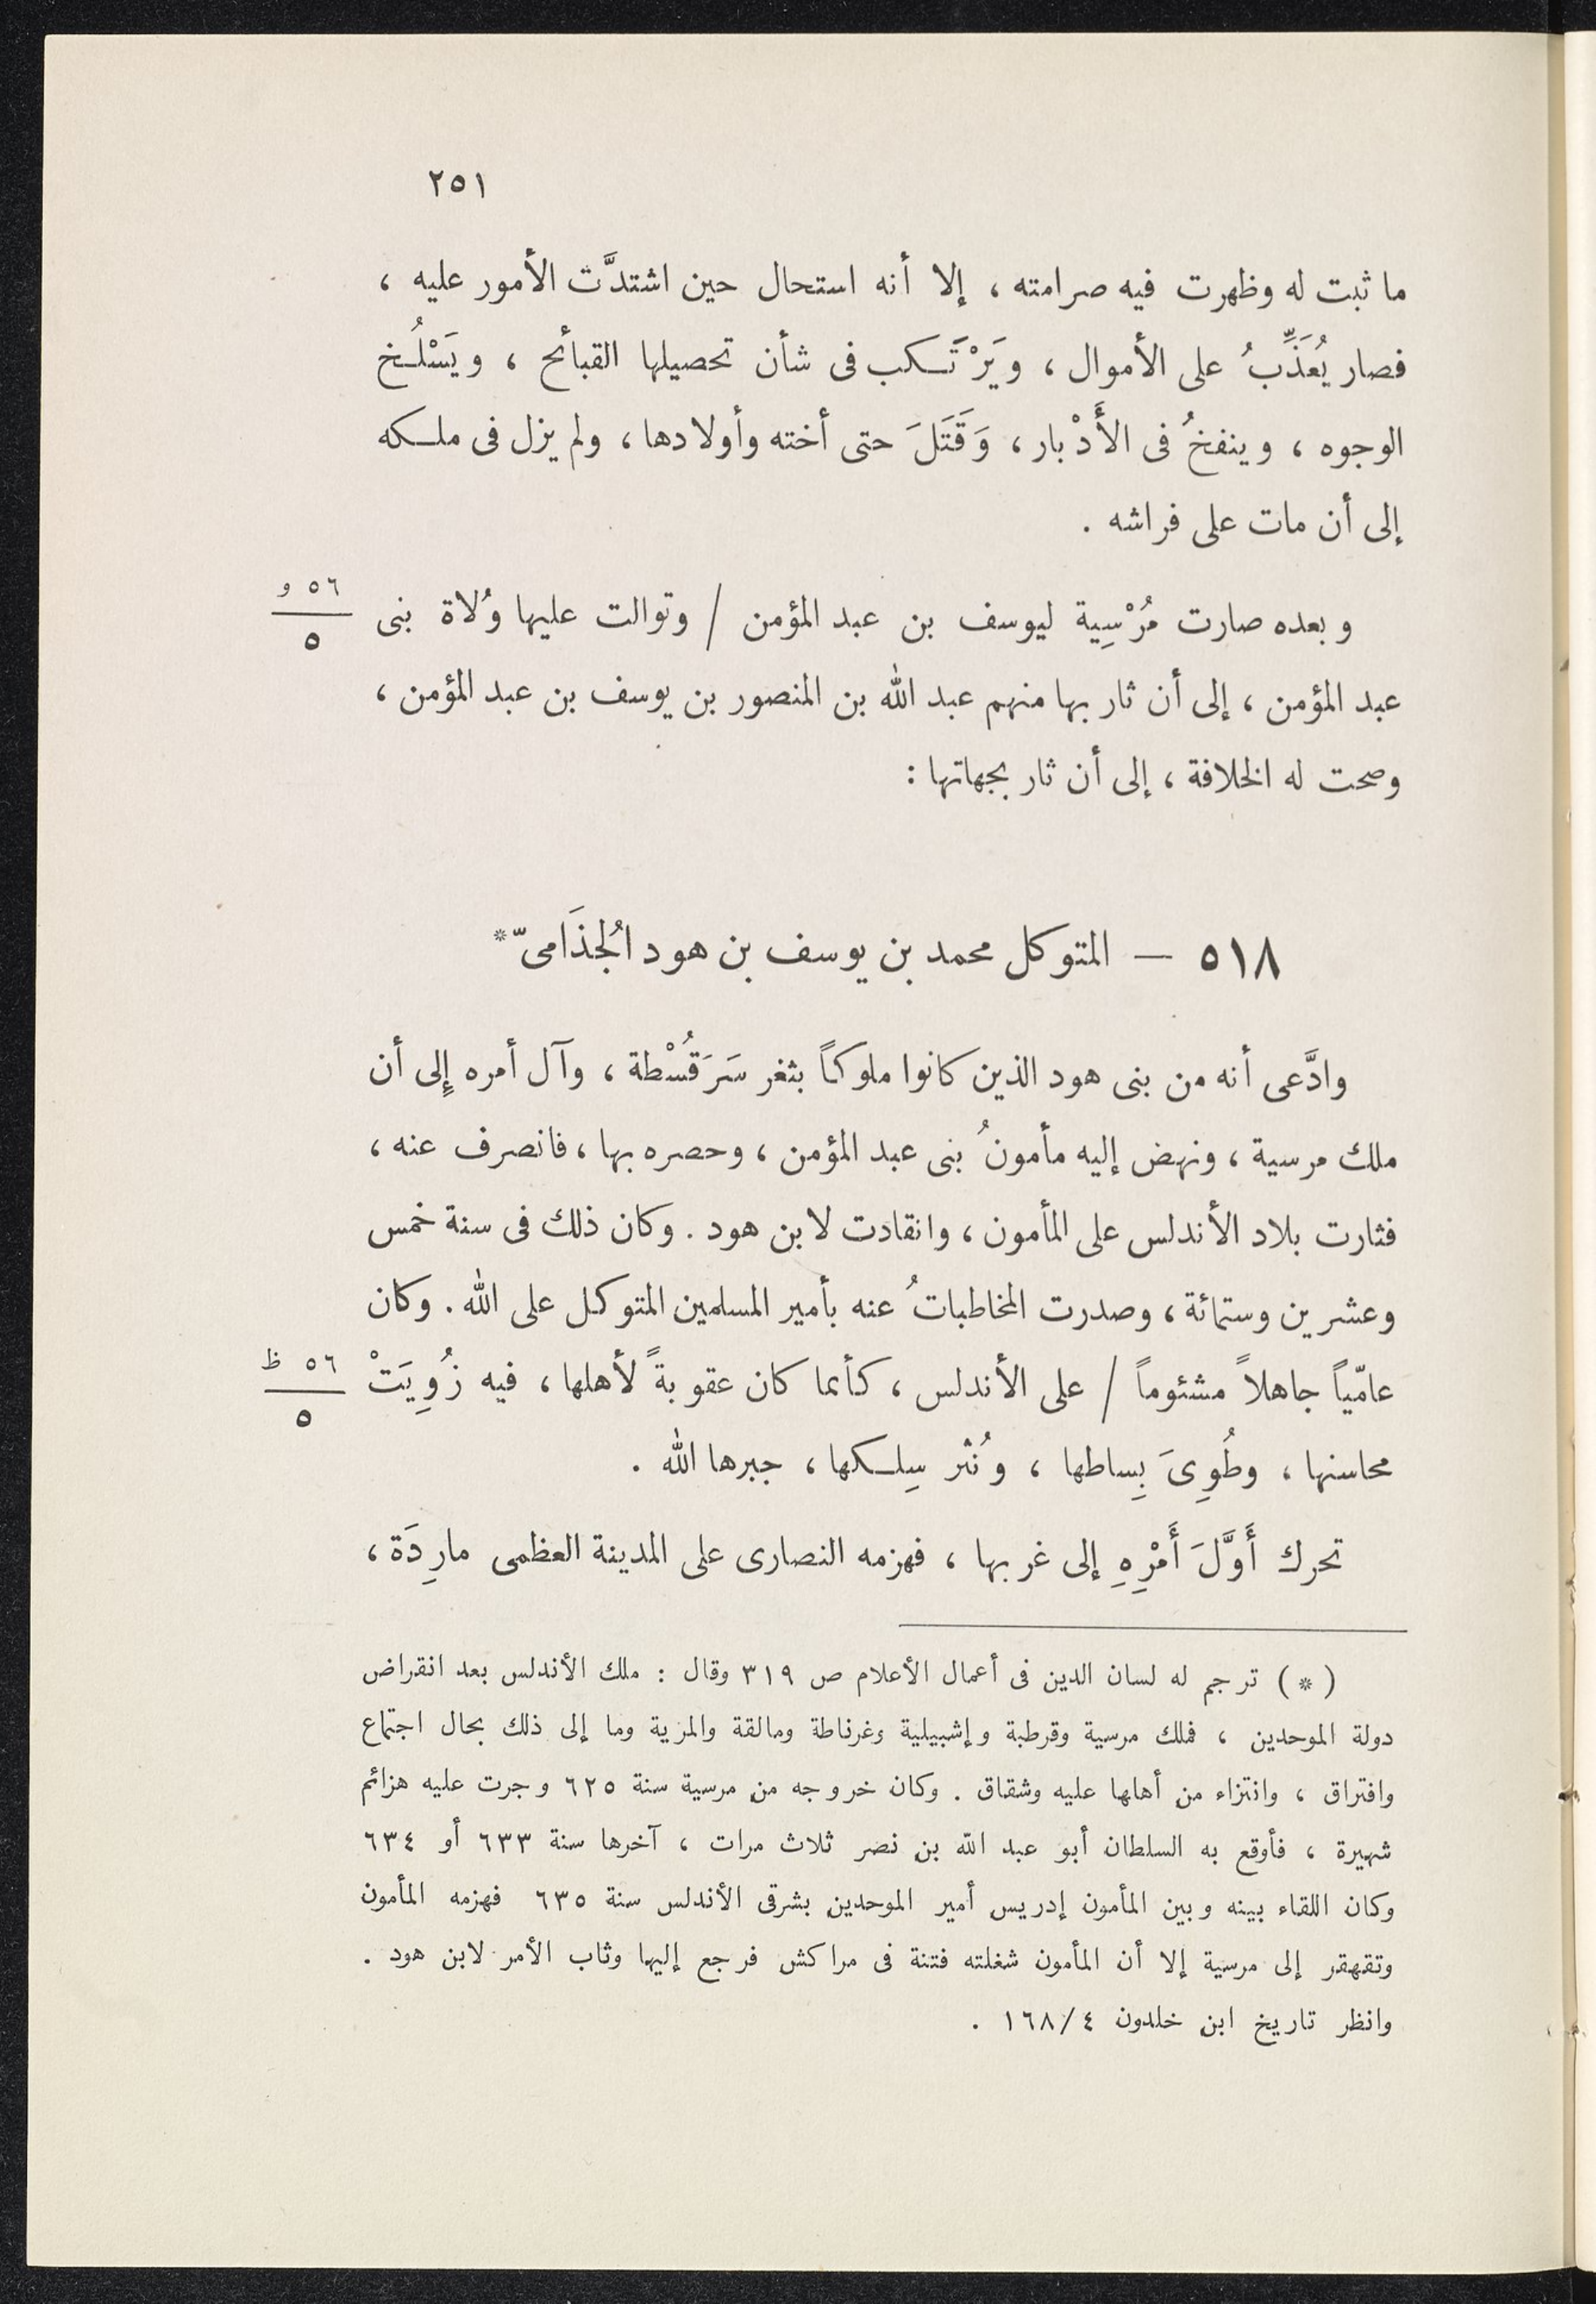 ٢٥١
ما ثبت له وظهرت فيه صرامته ، إلا أنه استحال حين اشتدَّت الأمور عليه ،
فصار يُعَذِّبُ على الأموال ، ويَرْتَكب فى شأن تحصيلها القبائح ، ويَسْلُخ
الوجوه ، وينفخُ فى الأَدْبار ، وَقَتَلَ حتى أخته وأولادها ، ولم يزل فى ملكه
إلى أن مات على فراشه .
وبعده صارت مُرْسِية ليوسف بن عبد المؤمن / وتوالت عليها وُلاة بنى
٥٦ و
٥
عبد المؤمن ، إلى أن ثار بها منهم عبد الله بن المنصور بن يوسف بن عبد المؤمن ،
وصحت له الخلافة ، إلى أن ثار بجهاتها :
٥١٨ — المتوكل محمد بن يوسف بن هود الُجذَامىّ*
وادَّعى أنه من بنى هود الذين كانوا ملوكاً بثغر سَرَقُسْطة ، وآل أمره إلى أن
ملك مرسية ، ونهض إليه مأمونُ بنى عبد المؤمن ، وحصره بها ، فانصرف عنه ،
فثارت بلاد الأندلس على المأمون ، وانقادت لابن هود . وكان ذلك فى سنة خمس
وعشرين وستمائة ، وصدرت المخاطباتُ عنه بأمير المسلمين المتوكل على الله . وكان
عامّياً جاهلاً مشئوماً / على الأندلس ، كأنما كان عقوبةً لأهلها ، فيه زُوِيَتْ
٥٦ ظ
٥
محاسنها ، وطُوِىَ بِساطها ، ونُثر سِلكها ، جبرها الله .
تحرك أَوَّلَ أَمْرِهِ إلى غربها ، فهزمه النصارى على المدينة العظمى مارِدَة ،
( * ) ترجم له لسان الدين فى أعمال الأعلام ص ٣١٩ وقال : ملك الأندلس بعد انقراض
دولة الموحدين ، فملك مرسية وقرطبة وإشبيلية وغرناطة ومالقة والمرية وما إلى ذلك بحال اجتماع
وافتراق ، وانتزاء من أهلها عليه وشقاق . وكان خروجه من مرسية سنة ٦٢٥ وجرت عليه هزائم
شهيرة ، فأوقع به السلطان أبو عبد الله بن نصر ثلاث مرات ، آخرها سنة ٦٣٣ أو ٦٣٤
وكان اللقاء بينه وبين المأمون إدريس أمير الموحدين بشرقى الأندلس سنة ٦٣٥ فهزمه المأمون
وتقهقر إلى مرسية إلا أن المأمون شغلته فتنة فى مراكش فرجع إليها وثاب الأمر لابن هود .
وانظر تاريخ ابن خلدون ٤/١٦٨ .